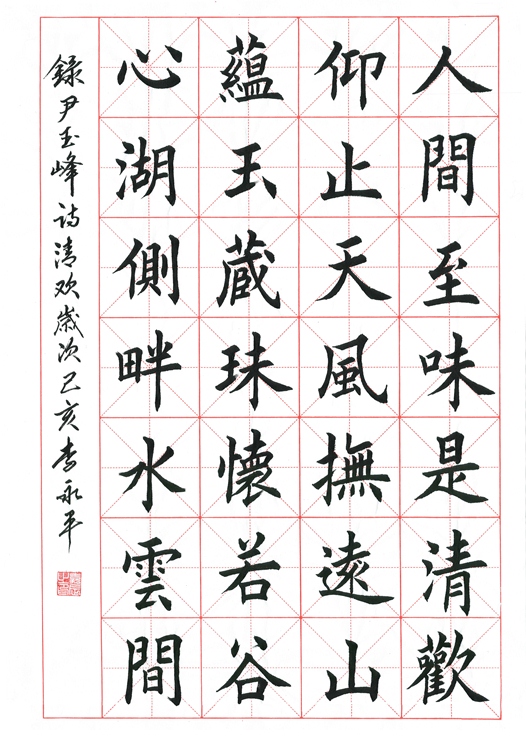 人間至味是清歡
仰止天風撫遠山
蘊玉藏珠懷若谷
心湖側畔水雲間
錄尹玉峰诗清欢歲次己亥李永平